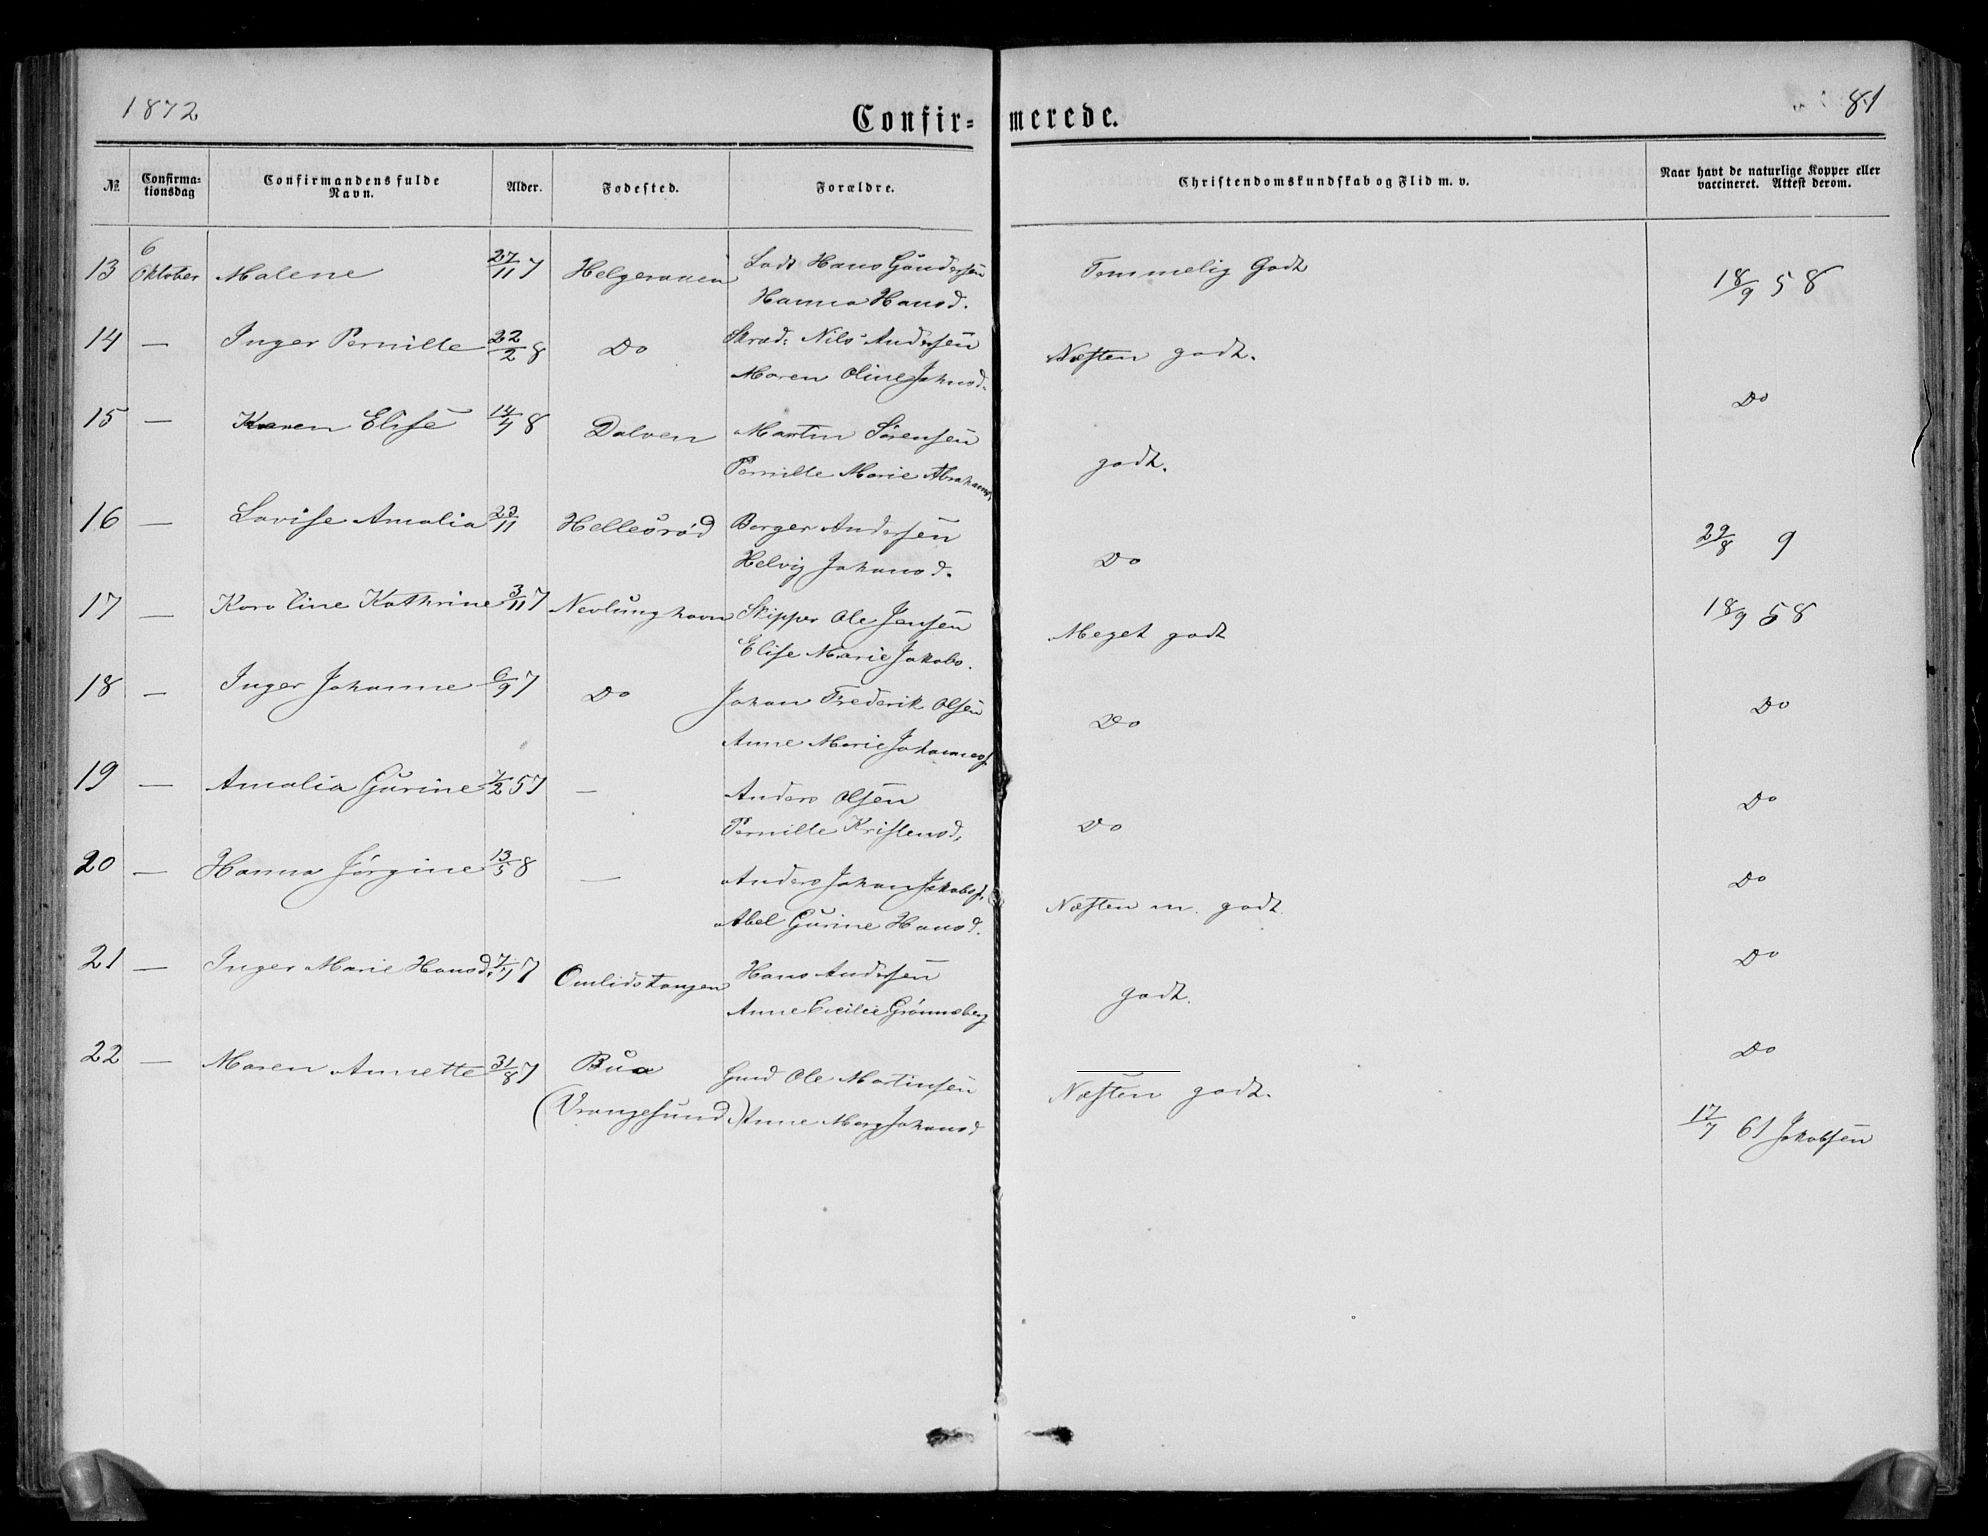 1872
Confirmerede.
81
№
Confirmationsdag
Confirmandens fulde Navn.
Alder.
Fødested.
Forældre.
Christendomskundskab og Flid m. v.
Naar havt de naturlige Kopper eller vaccineret. Attest derom.
13 6 Oktober Malene 27/11 7 Helgeroaen Lods Hans Gundersen Temmelig Godt 18/9 58
Hanna Hansd.
14 — Inger Pernille 22/2 8 Do Skræd: Nils Andersen Næsten godt.
Maren Oline Johnsd. Do
15 — Karen Elise 14/7 8 Dolven Martin Sørensen godt.
Pernille Marie Abrahams
16 — Lovise Amalia 23/11 Hellesrød Borger Andersen Do 29/8 9
Helvig Johansd.
17 — Karoline Kathrine 3/11 7 Nevlunghavn Skipper Ole Jensen Meget godt 18/9 58
Elise Marie Jakobs.
18 — Inger Johanne 6/9 7 Do Johan Frederik Olsen Do Do
Anne Marie Johannesd.
19 — Amalia Gurine 7/2 57 — Anders Olsen Do Do
Pernille Kristensd.
20 — Hanna Jørgine 13/5 8 — Anders Johan Jakobs. Næsten m. godt. Do
Abel Gurine Hansd.
21 — Inger Marie Hansd. 7/7 7 Omlidstangen Hans Andersen godt. Do
Anne Cecilie Grønneberg
22 — Maren Annette 31/8 7 Bua Gmd Ole Martinsen Næsten godt. Do
(Vrangesund) Anne Marg Johansd 17/7 61 Jakobsen